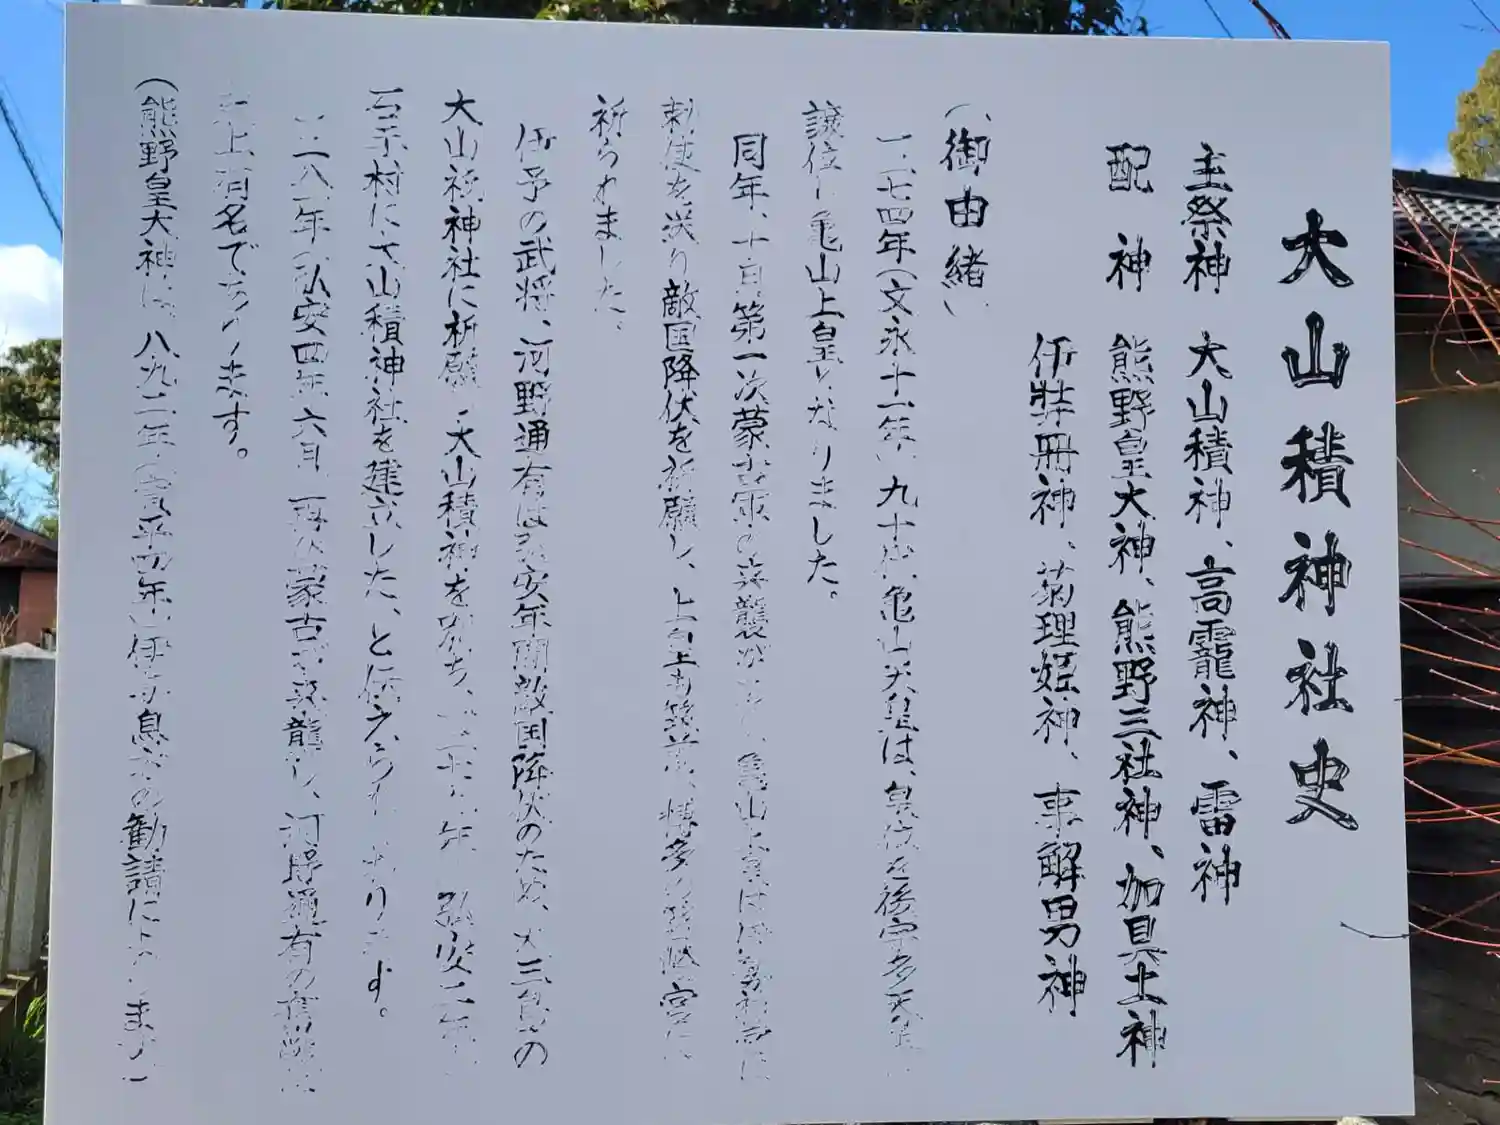 大山積神社史
主祭神 大山積神、高龗神、雷神
配神 熊野皇大神、熊野三社神、加具土神
伊弉冊神、菊理姫神、事解男神
(御由緒)
一二七四年(文永十一年)九十代亀山天皇は、皇位を後宇多天皇に
譲位し亀山上皇となりました。
同年、十月第一次蒙古軍の来襲があり、亀山上皇は
勅使を送り敵国降伏を祈願し、上皇も筑前、博多の筥崎宮に
祈られました。
伊予の武将、河野通有は弘安年間敵国降伏のため、大三島の
大山祇神社に祈願し大山積神を 年 弘安二年
石手村に大山積神社を建立した、と伝えられております。
一二八一年(弘安四年)六月 再び蒙古軍が来襲し、河野通有の奮戦は
史上有名であります。
(熊野皇大神は、八九二年(寛平四年)伊予 の勧請によります)